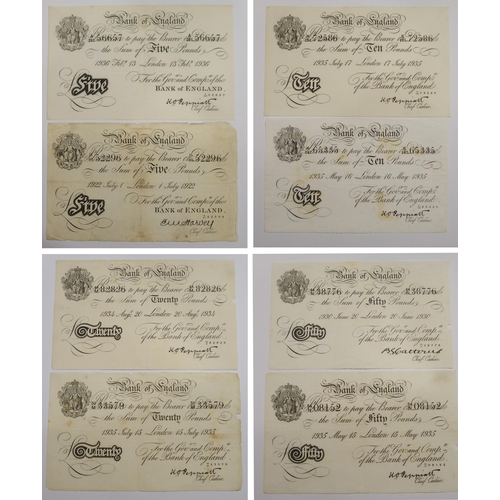 Bank of England
56657 to pay the Bearer 56657
the Sum of Five Pounds
1936 Feb. 13 London 13 Feb. 1936
For the Gov.r and Comp.a of the
Five
BANK of ENGLAND.
K O Peppiatt
Chief Cashier
Bank of England
52296 to pay the Bearer 52296
the Sum of Five Pounds
1922 July 4 London 4 July 1922
For the Gov.r and Comp.a of the
Five
BANK of ENGLAND.
Chief Cashier
Bank of England
72586 to pay the Bearer 72586
the Sum of Ten Pounds
1935 July 17 London 17 July 1935
For the Gov.r and Comp.a
Ten
of the Bank of England.
K O Peppiatt
Chief Cashier
Bank of England
65335 to pay the Bearer 65335
the Sum of Ten Pounds
1935 May 16 London 16 May 1935
For the Gov.r and Comp.a
Ten
of the Bank of England.
K O Peppiatt
Chief Cashier
Bank of England
82826 to pay the Bearer 82826
the Sum of Twenty Pounds
1934 Aug. 20 London 20 Aug. 1934
For the Gov.r and Comp.a
Twenty
of the Bank of England.
K O Peppiatt
Chief Cashier
Bank of England
33579 to pay the Bearer 33579
the Sum of Twenty Pounds
1935 July 15 London 15 July 1935
For the Gov.r and Comp.a
Twenty
of the Bank of England.
K O Peppiatt
Chief Cashier
Bank of England
38776 to pay the Bearer 38776
the Sum of Fifty Pounds
1930 June 20 London 20 June 1930
For the Gov.r and Comp.a
Fifty
of the Bank of England.
B G Catterns
Chief Cashier
Bank of England
08152 to pay the Bearer 08152
the Sum of Fifty Pounds
1935 May 15 London 15 May 1935
For the Gov.r and Comp.a
Fifty
of the Bank of England.
K O Peppiatt
Chief Cashier